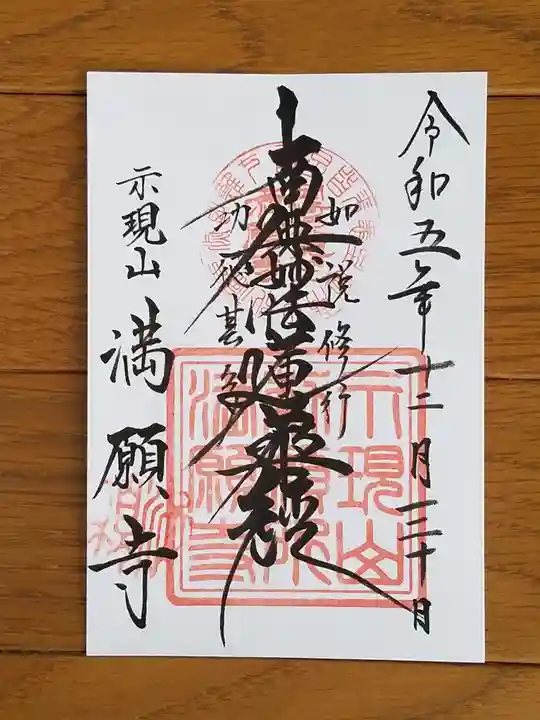 令和五年十二月三十日
如説修行
南無妙法蓮華経
功徳甚多
示現山
満願寺